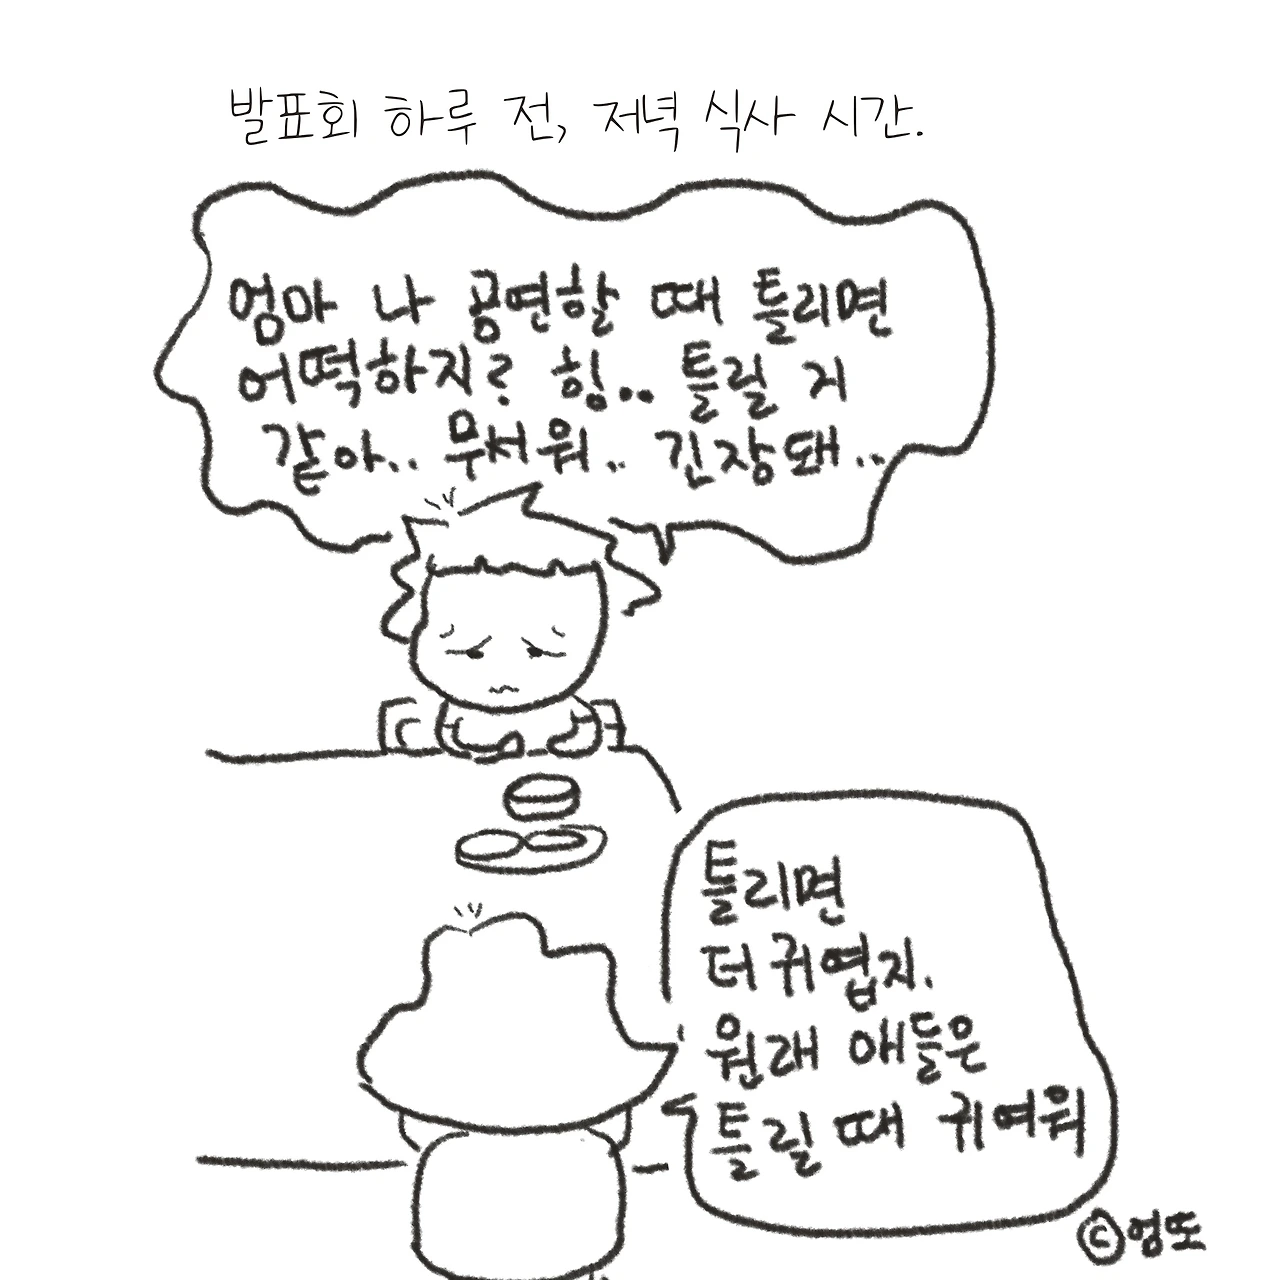 발표회 하루 전, 저녁 식사 시간.
엄마 나 공연할 때 틀리면
어떡하지? 힝.. 틀릴 거
같아.. 무서워.. 긴장돼..
틀리면
더 귀엽지.
원래 애들은
틀릴 때 귀여워
©엉또